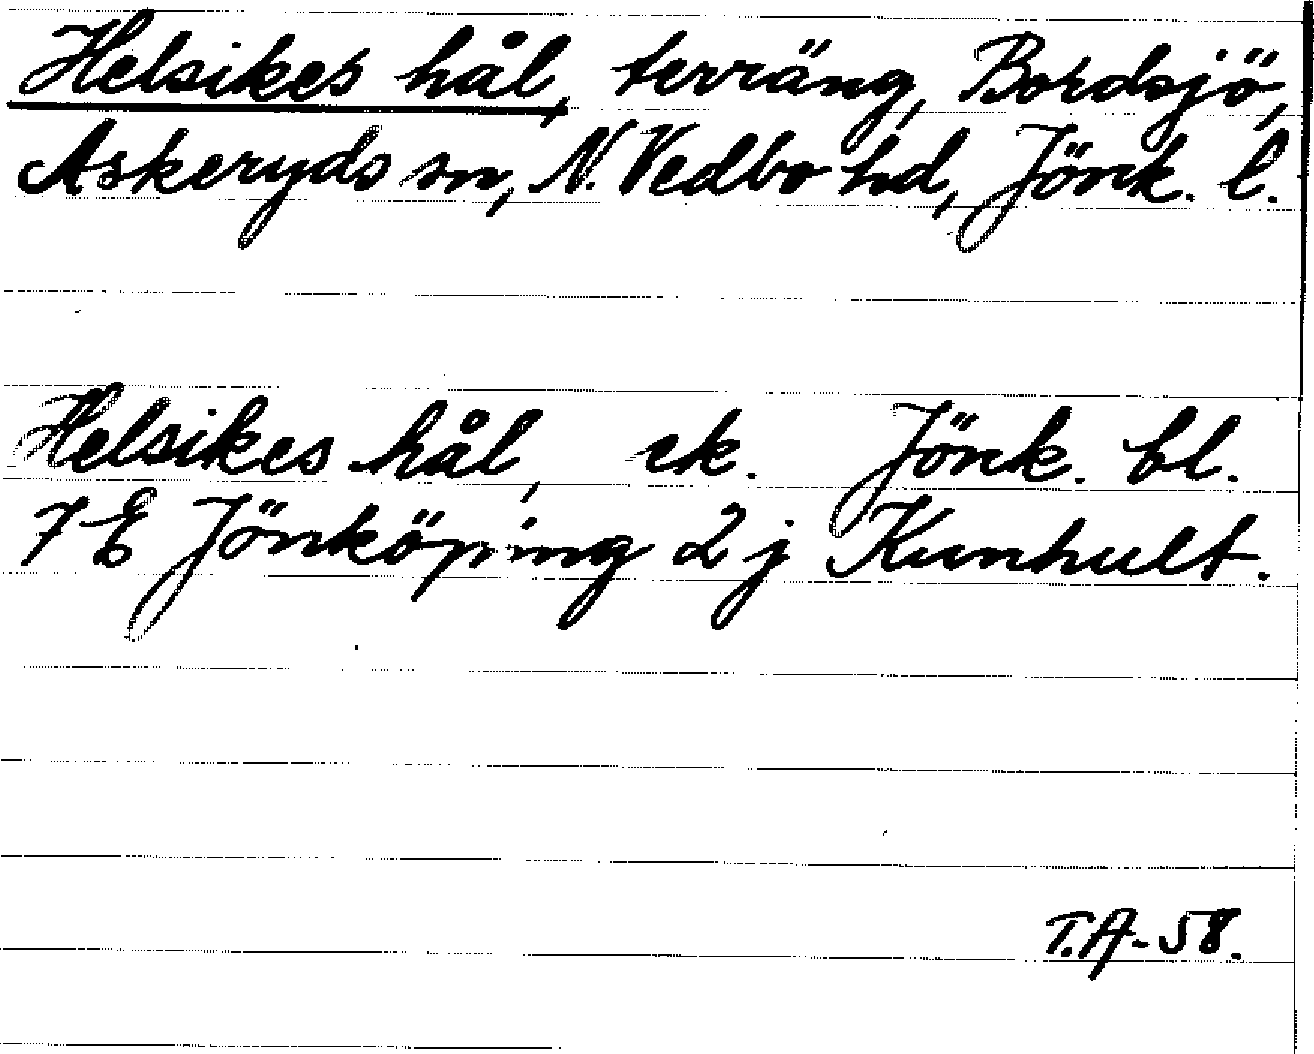 Helsikes hål, terräng, Bordsjö,
Askeryds sn, N. Vedbo hd, Jönk. l.
Helsikes hål, ek. Jönk. bl.
7 E Jönköping 2 j Kunhult.
T.A-58.